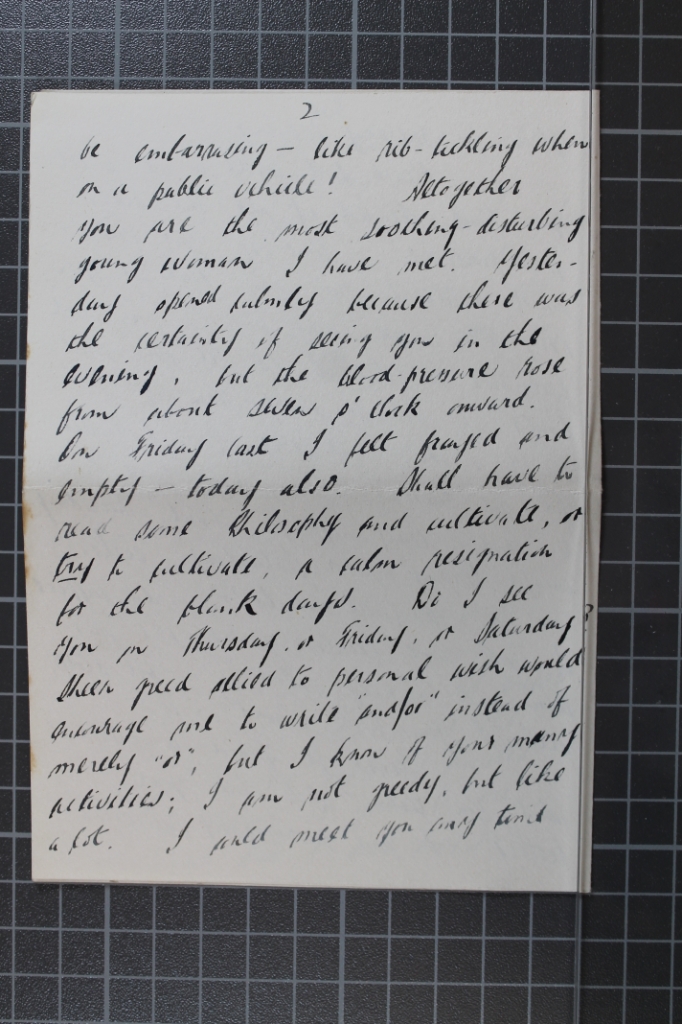 2
be embarrasing – like rib-tickling when
on a public vehicle! Altogether
you are the most soothing-disturbing
young woman I have met. Yester-
day opened calmly because there was
the certainty of seeing you in the
evening, but the blood-pressure rose
from about seven o'clock onward.
On Friday last I felt frayed and
empty – today also. Shall have to
read some Philosophy and cultivate, or
try to cultivate, a calm resignation
for the blank days. Do I see
you on Thursday, or Friday, or Saturday?
Sheer greed allied to personal wish would
encourage me to write "and/or" instead of
merely "or", but I know of your many
activities; I am not greedy, but like
a lot. I could meet you any time